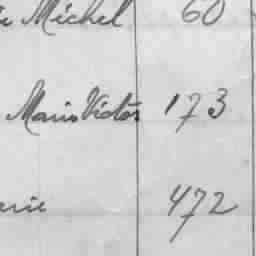 Michel 60
Maris Victor 173
arie 472